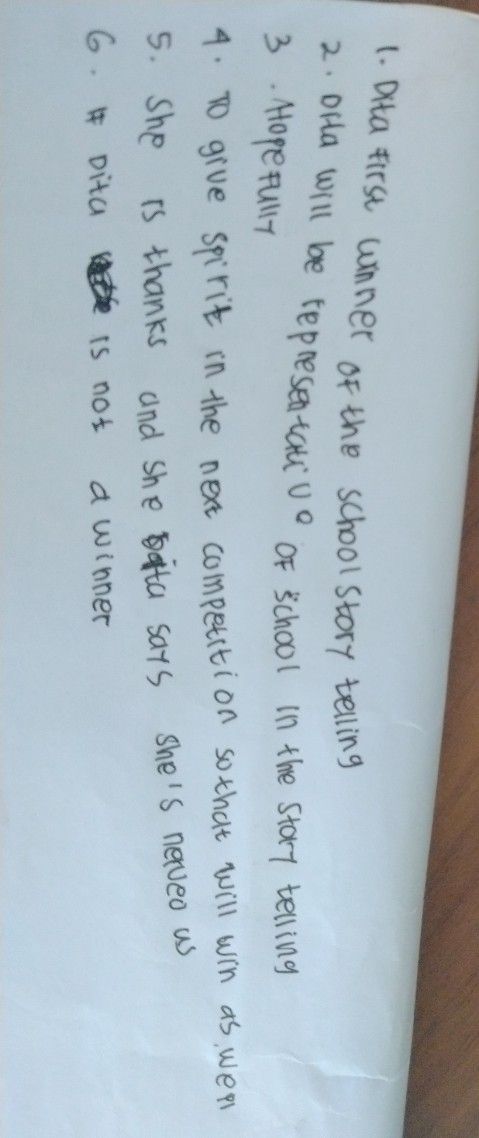 1. Dita first winner of the school story telling
2. Dita will be representative of school in the story telling
3. Hopefully
4. To give spirit in the next competition so that will win as well
5. She is thanks and she says she's nerveous
6. If Dita is not a winner